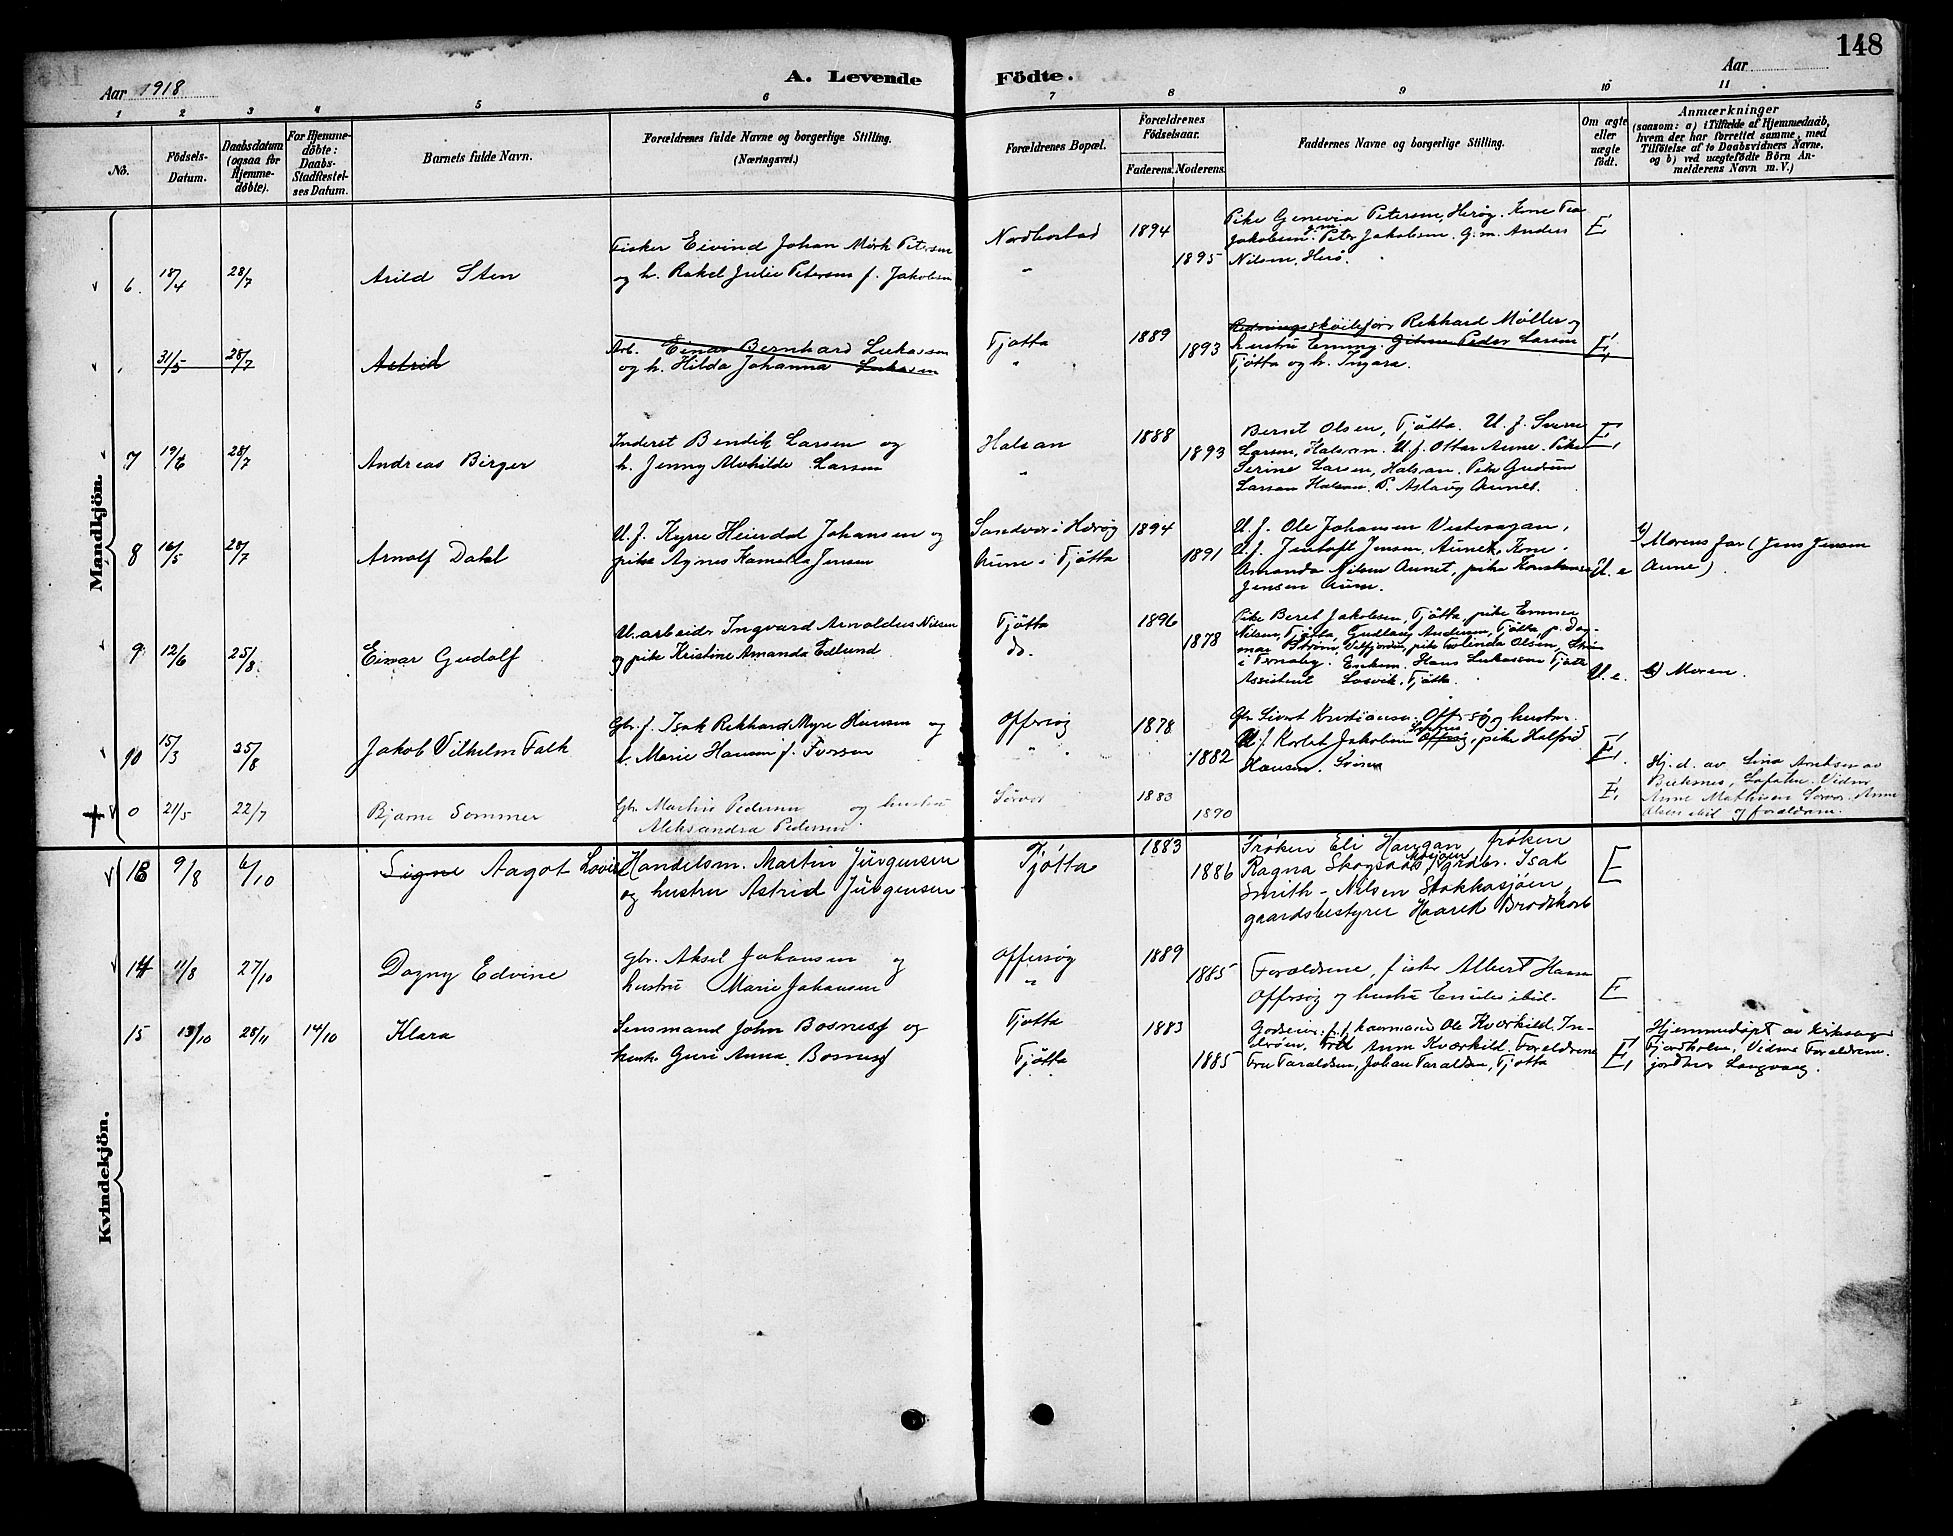 148
Aar 1918
A. Levende
Födte.
Aar
1 2 3 4 5 6 7 8 9 10 11
No.
Födsels-
Datum.
Daabsdatum
(ogsaa for
Hjemme-
döbte).
For Hjemme-
döbte:
Daabs-
Stadfæstel-
ses Datum.
Barnets fulde Navn.
Forældrenes fulde Navne og borgerlige Stilling.
(Næringsvei.)
Forældrenes Bopæl.
Forældrenes
Födselsaar.
Faderens. Moderens.
Faddernes Navne og borgerlige Stilling.
Om ægte
eller
uægte
födt.
Anmærkninger
(saasom: a) i Tilfælde af Hjemmedaab,
hvem der har forrettet samme, med
Tilföielse af to Daabsvidners Navne,
og b) ved uægtefödte Börn An-
melderens Navn m. V.)
Mandkjön.
6. 18/4 28/7 Arild Sten
Fisker Eivind Johan Mörk Petersen
og h. Rakel Julie Petersen f. Jakobsen
Nordhorstad 1894
" 1895
Pike Genevia Petersen, Herøy. Kone Tea
Jakobsen. gm. Peter Jakobsen. G.m. Anders
Nilsen, Herö.
E
31/5 28/7 Astrid
Arb. Einar Bernhard Lukassen
og h. Hilda Johanna Lukassen
Tjøtta 1889
" 1893
Redningsskøitefører Rekhard Møller og
hustru Emmy. Peder Larsen
Tjötta og h. Ingara.
E,
7 19/6 28/7 Andreas Birger
Inderst Bendik Larsen og
h. Jenny Alvhilde Larsen
Halsan 1888
" 1893
Bernt Olsen, Tjötta. U. f. Sverre
Larsen, Halsan. U. f. Ottar Aune. Pike
Serine Larsen, Halsan. Pike Gudrun
Larsen Halsan. P. Aslaug Aunet.
E,
8 16/5 28/7 Arnolf Dahl
U. f. Kyrre Heierdal Johansen og
pike Agnes Kamilla Jensen
Sandvær i Herøy 1894
Aune i Tjøtta 1891
U. f. Ole Johansen Vestvaagan,
U. f. Jentoft Jensen, Aunet, Kone
Amanda Nilsen Aunet, pike Konstanse
Jensen Aune.
U. e
b) Morens far (Jens Jensen
Aune)
9 12/6 25/8 Einar Gudolf
U. arbeider Ingvard Arnoldus Nilsen
og pike Kristine Amanda Edlund
Tjötta 1896
do. 1878
Pike Beret Jakobsen, Tjötta, pike Emma
Nilsen, Tjötta, Gudlaug Andersen, Tjötta, p. Dag-
mar Ström, Velfjorden, pike Olsen,
i Enkem. Hans Lukassen Tjötta
Assistent Losvik, Tjötta.
U. e.
b) Moren.
10 15/3 25/8 Jakob Vilhelm Falk
Gbr. f. Isak Rekhard Myre Hansen og
h. Marie Hansen f. Iversen
Offersøy 1878
" " 1882
Gbr Sivert Kristiansen, Offersøy og hustru.
U. f. Korlet Jakobsen Offersøy, pike Halfrid
Hansen.
E,
0 21/5 22/7 Bjarne Sommer
Gbr. Martin Pedersen og hustru
Aleksandra Pedersen
Sørvær 1883
1890
E,
Hj. d. av Lina Arntsen av
Buksnes, Lofoten. Vidner
Anne Mathisen Sörvær. Anne
Olsen ibid og forældrene.
Kvindekjön.
13 9/8 6/10 Signe Aagot Lovise
Handelsm. Martin Jürgensen
og hustru Astrid Jürgensen
Tjøtta 1883
1886
Frøken Eli Haugan frøken
Ragna Skogsaas, grdbr. Isak
Smith-Nilsen Stokkasjøen,
gaardsbestyrer Haarek Brodtkorb
E
14 11/8 27/10 Dagny Edvine
Gbr. Aksel Johansen og
hustru Marie Johansen
Offersøy 1889
" 1885
Forældrene, fisker Albert Hansen
Offersøy og hustru Emilie ibid.
E
15 13/10 28/11 14/10 Klara
Lensmand John Bosnesf og
hustr. Guri Anna Bosnesf
Tjøtta 1883
Tjøtta 1885
Godseier, f.f. kaarmand Ole Kvœrkild In-
derøen, Anne Kværkild. Forældrene
Fru Taraldsen, Johan Taraldsen, Tjøtta
E,
Hjemmedøpt av kirkesanger
Fjordholm, Vidner Forældrene.
jordmor Langvaag.